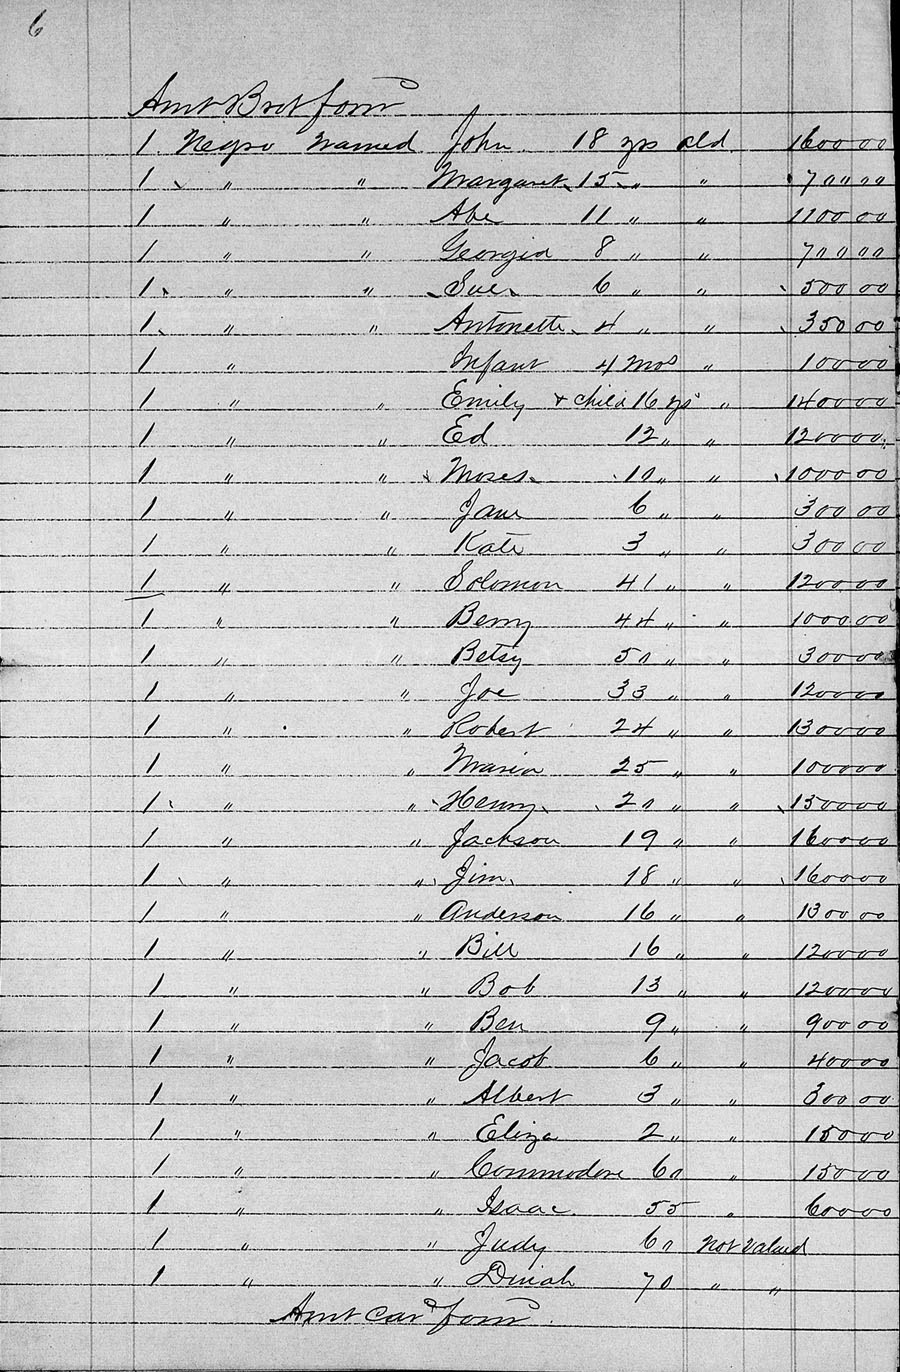 6
Amt Brot forw
1. Negro named John. 18 yrs old. 1600 00
1 " " Margaret 15 " " 700 00
1 " " Abe 11 " " 1100 00
1 " " Georgia 8 " " 700 00
1 " " Sue 6 " " 500 00
1 " " Antonette 4 " " 350 00
1 " Infant 4 mos " 100 00
1 " " Emily & child 16 yrs " 1400 00
1 " " Ed 12 " " 1200 00
1 " " Moses 10 " " 1000 00
1 " " Jane 6 " " 300 00
1 " " Kate 3 " " 300 00
1 " " Solomon 41 " " 1200 00
1 " " Berry 44 " " 1000 00
1 " " Betsy 50 " " 300 00
1 " " Joe 33 " " 1200 00
1 " " Robert 24 " " 1300 00
1 " " Maria 25 " " 1000 00
1 " " Henry 20 " " 1500 00
1 " " Jackson 19 " " 1600 00
1 " " Jim 18 " " 1600 00
1 " " Anderson 16 " " 1300 00
1 " " Bill 16 " " 1200 00
1 " " Bob 13 " " 1200 00
1 " " Ben 9 " " 900 00
1 " " Jacob 6 " " 400 00
1 " " Albert 3 " " 300 00
1 " " Eliza 2 " " 150 00
1 " " Commodore 60 " 150 00
1 " " Isaac 55 " 600 00
1 " " Judy 60 not valued
1 " " Dinah 70 " "
Amt card forw.